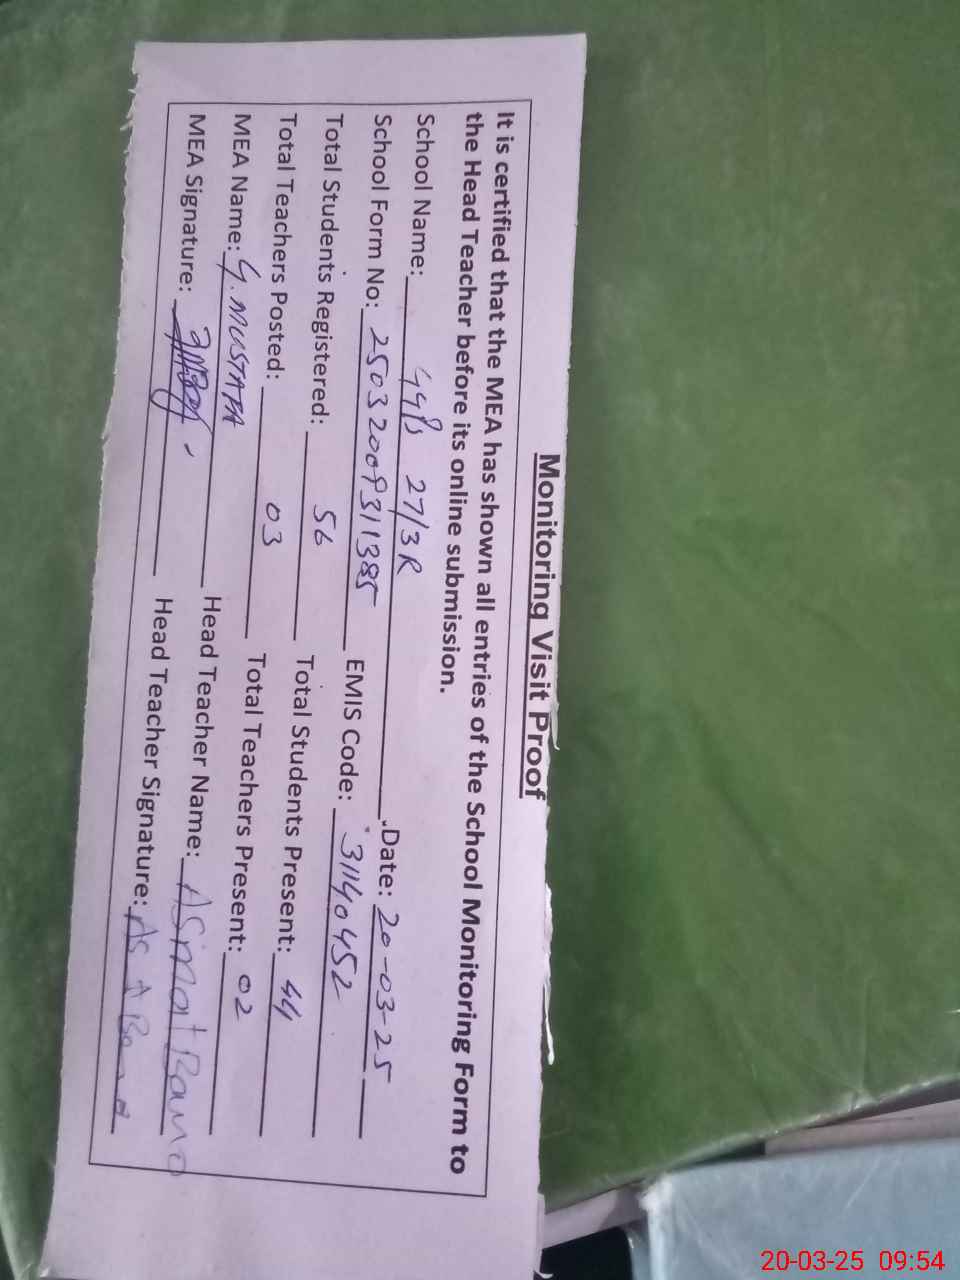 Monitoring Visit Proof
It is certified that the MEA has shown all entries of the School Monitoring Form to
the Head Teacher before its online submission.
School Name: GGPS 27/3R Date: 20-03-25
School Form No: 25032009311385 EMIS Code: 31140452
Total Students Registered: 56 Total Students Present: 44
Total Teachers Posted: 03 Total Teachers Present: 02
MEA Name: G. MUSTAFA Head Teacher Name: Asmat Bano
MEA Signature: Head Teacher Signature:
20-03-25 09:54